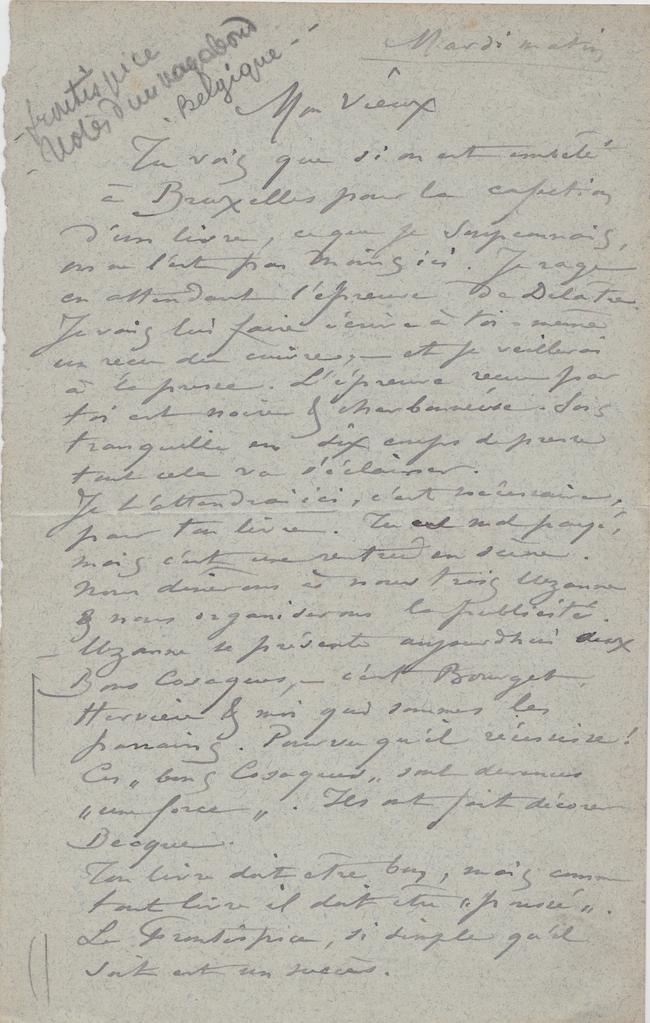 frontispice
Notes d'un vagabond
Belgique -
Mardi matin
Mon Vieux
Tu vois que si on est embêté
à Bruxelles pour la
d'un livre, ce que je soupçonnais,
on ne l'est pas moins ici. Je rage
en attendant l'épreuve de Delatre.
Je vais lui faire écrire à toi-même
un reçu du cuivre, – et je veillerai
à la presse. L'épreuve reçue par
toi est noire & charbonneuse. Sois
tranquille en dix coups de presse
tout cela va s'éclaircir.
Je t'attendrai ici, c'est nécessaire,
pour ton livre. Tu es mal payé,
mais c'est une rentrée en scène.
Nous dînerons à nous trois Uzanne
& nous organiserons la publicité.
– Uzanne se présente aujourdhui aux
Bons Cosaques, – c'est Bourget,
Hervieu & moi qui sommes les
parrains. Pourvu qu'il réussisse !
Ces „ bons Cosaques „ sont devenus
„ une force „. Ils ont fait décorer
Becque.
Ton livre doit être bon, mais comme
tout livre il doit être „ „.
Le Frontispice, si simple qu'il
soit est un succès.